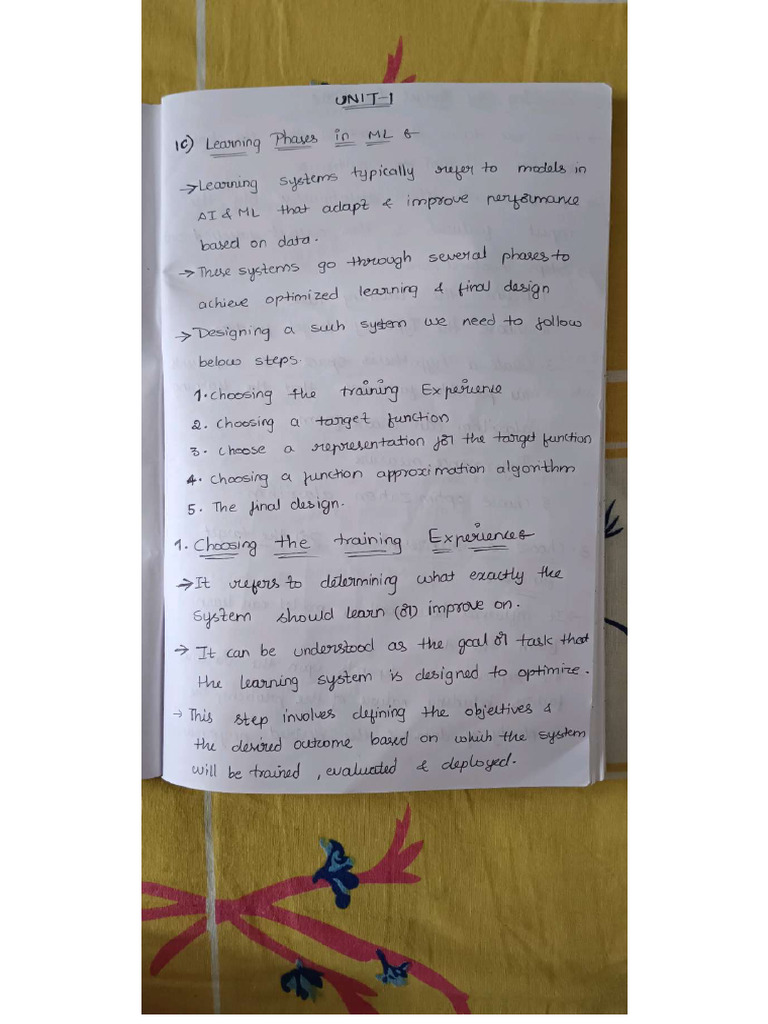 UNIT-1
1c) Learning Phases in ML :-
→ Learning systems typically refer to models in
AI & ML that adapt & improve performance
based on data.
→ These systems go through several phases to
achieve optimized learning & final design
→ Designing a such system we need to follow
below steps.
1. choosing the training Experience
2. choosing a target function
3. choose a representation for the target function
4. choosing a function approximation algorithm
5. The final design.
1. Choosing the training Experience:-
→ It refers to determining what exactly the
system should learn (or) improve on.
→ It can be understood as the goal or task that
the learning system is designed to optimize.
→ This step involves defining the objectives &
the desired outcome based on which the system
will be trained, evaluated & deployed.